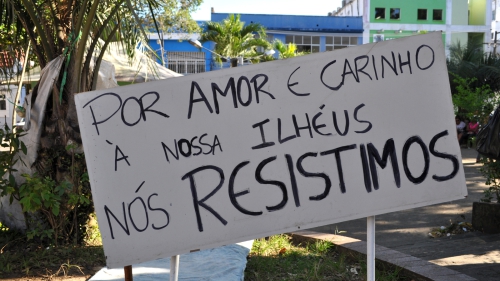 POR AMOR E CARINHO
À NOSSA ILHÉUS
NÓS RESISTIMOS